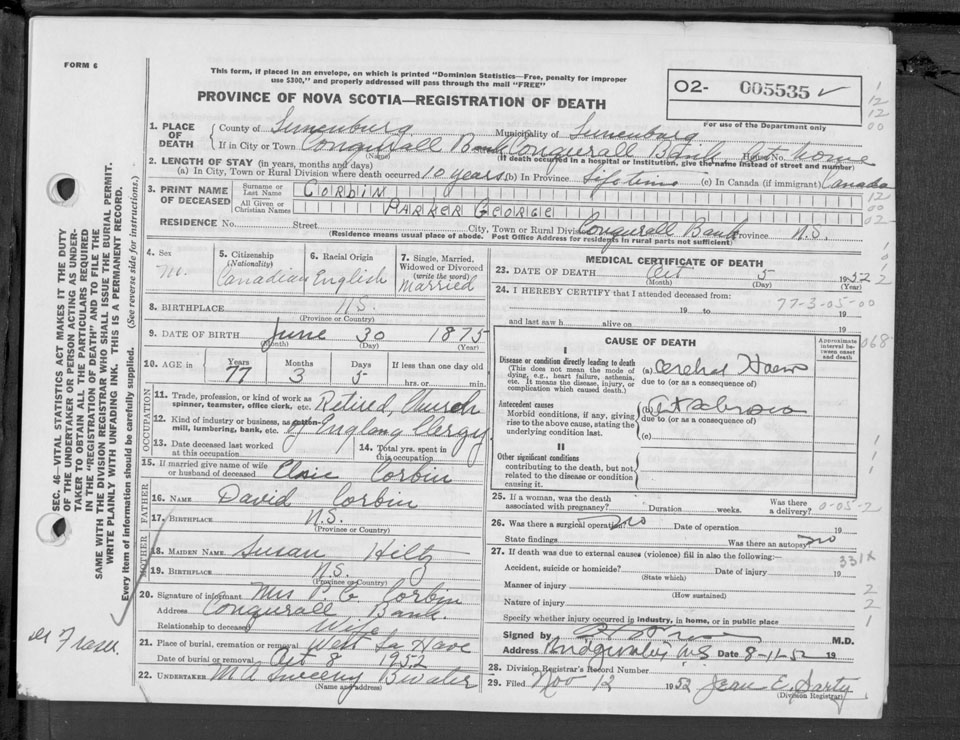 FORM 6
This form, if placed in an envelope, on which is printed "Dominion Statistics—Free, penalty for improper
use $300," and properly addressed will pass through the mail "FREE"
PROVINCE OF NOVA SCOTIA—REGISTRATION OF DEATH
O2- 005535 ✓
For use of the Department only
1. PLACE OF DEATH
County of Lunenburg Municipality of Lunenburg
If in City or Town Conqurall Bank Conqurall Bank House No. At home
(Name) (If death occurred in a hospital or institution, give the name instead of street and number)
2. LENGTH OF STAY (in years, months and days)
(a) In City, Town or Rural Division where death occurred 10 years (b) In Province Lifetime (c) In Canada (if immigrant) Canada
3. PRINT NAME OF DECEASED
Surname or Last Name CORBIN
All Given or Christian Names PARKER GEORGE
RESIDENCE No. Street City, Town or Rural Div. Conqurall Bank Province N.S.
(Residence means usual place of abode. Post Office Address for residents in rural parts not sufficient)
4. Sex M.
5. Citizenship (Nationality) Canadian
6. Racial Origin English
7. Single, Married, Widowed or Divorced (write the word) Married
8. BIRTHPLACE N.S.
(Province or Country)
9. DATE OF BIRTH June 30 1875
(Month) (Day) (Year)
10. AGE in Years 77 Months 3 Days 5 If less than one day old hrs. or min.
OCCUPATION
11. Trade, profession, or kind of work as spinner, teamster, office clerk, etc. Retired Church
12. Kind of industry or business, as cotton-mill, lumbering, bank, etc. of England Clergy
13. Date deceased last worked at this occupation
14. Total yrs. spent in this occupation
15. If married give name of wife or husband of deceased Corbin
FATHER
16. NAME David Corbin
17. BIRTHPLACE N.S.
(Province or Country)
MOTHER
18. MAIDEN NAME Susan Hiltz
19. BIRTHPLACE N.S.
(Province or Country)
20. Signature of informant Mrs P. G. Corbin
Address Conqurall Bank.
Relationship to deceased Wife
21. Place of burial, cremation or removal West La Have
Date of burial or removal Oct 8 1952
22. UNDERTAKER Sweeny B'water
(Name and address)
MEDICAL CERTIFICATE OF DEATH
23. DATE OF DEATH Oct 5 1952
(Month) (Day) (Year)
24. I HEREBY CERTIFY that I attended deceased from:
77-3-05-00
19 to 19
and last saw h alive on 19
CAUSE OF DEATH
Approximate interval between onset and death
068
I
Disease or condition directly leading to death
(This does not mean the mode of dying, e.g., heart failure, asthenia, etc. It means the disease, injury, or complication which caused death.)
(a) Cerebral Haem
due to (or as a consequence of)
Antecedent causes
Morbid conditions, if any, giving rise to the above cause, stating the underlying condition last.
(b)
due to (or as a consequence of)
(c)
II
Other significant conditions
contributing to the death, but not related to the disease or condition causing it.
25. If a woman, was the death associated with pregnancy? Duration weeks. Was there a delivery?
26. Was there a surgical operation? no Date of operation 19
State findings Was there an autopsy? no
27. If death was due to external causes (violence) fill in also the following:—
331X
Accident, suicide or homicide? Date of injury 19
(State which)
Manner of injury
(How sustained)
Nature of injury
Specify whether injury occurred in industry, in home, or in public place
Signed by M.D.
Address Bridgewater NS Date 8-11-52 19
28. Division Registrar's Record Number
29. Filed Nov 12 1952 Jean E. Darty
(Division Registrar)
SEC. 46—VITAL STATISTICS ACT MAKES IT THE DUTY
OF THE UNDERTAKER OR PERSON ACTING AS UNDER-
TAKER TO OBTAIN ALL THE PARTICULARS REQUIRED
IN THE "REGISTRATION OF DEATH" AND TO FILE THE
SAME WITH THE DIVISION REGISTRAR WHO SHALL ISSUE THE BURIAL PERMIT.
WRITE PLAINLY WITH UNFADING INK. THIS IS A PERMANENT RECORD.
Every item of information should be carefully supplied. (See reverse side for instructions.)